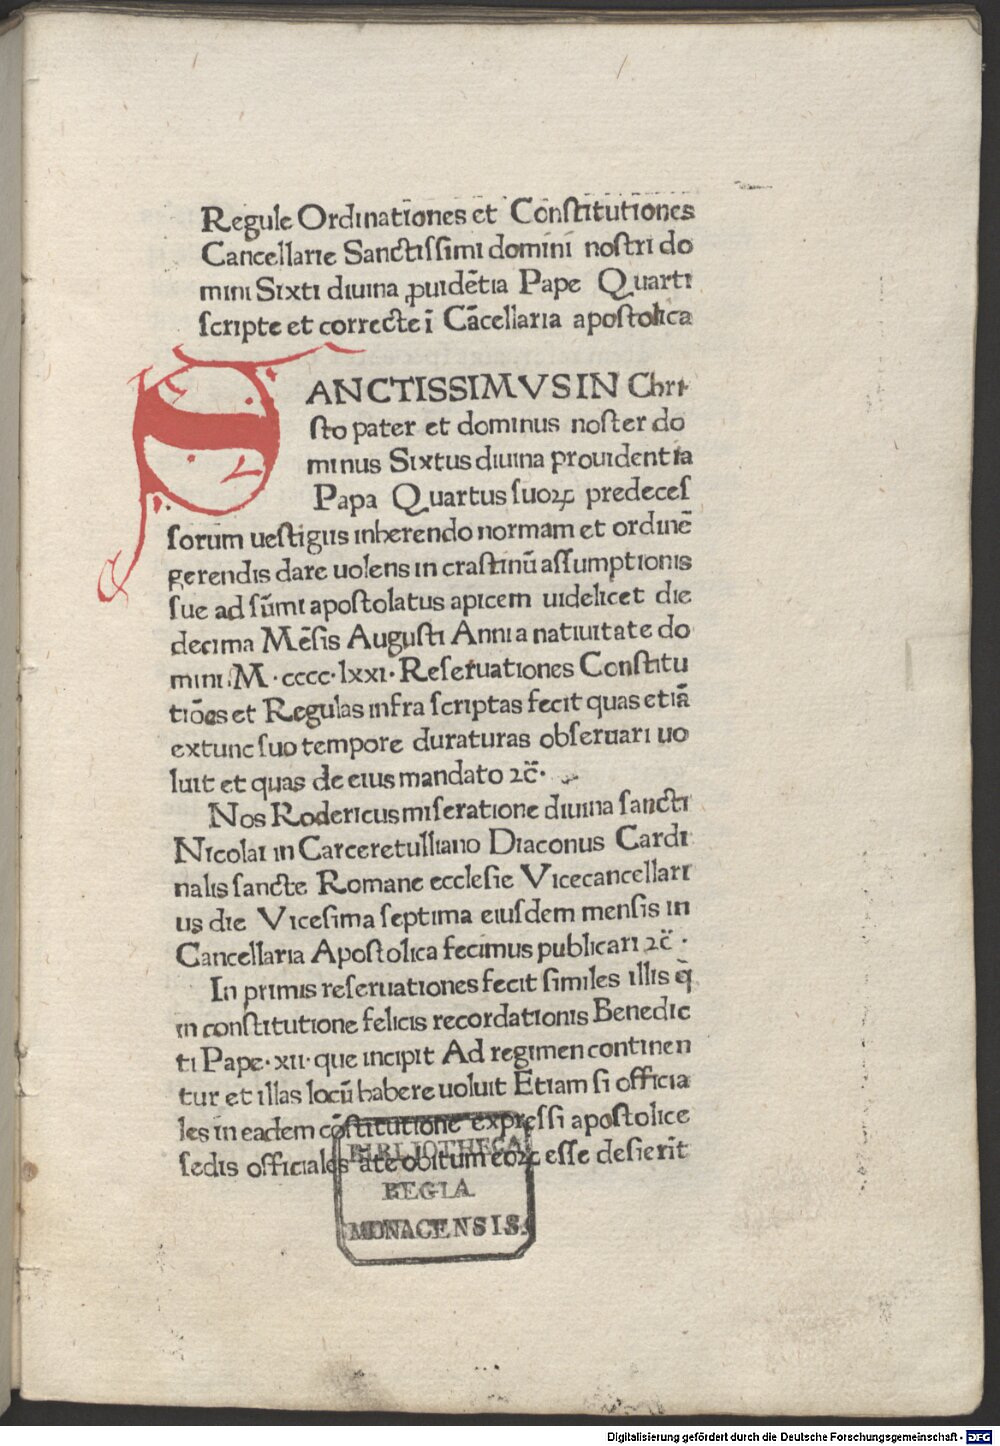 Regule Ordinationes et Constitutiones
Cancellarie Sanctissimi domini nostri do
mini Sixti diuina ꝓuidẽtia Pape Quarti
scripte et correcte ĩ Cãcellaria apostolica
SANCTISSIMVS IN Chri
sto pater et dominus noster do
minus Sixtus diuina prouidentia
Papa Quartus suoꝝ predeces
sorum uestigiis inherendo normam et ordinẽ
gerendis dare uolens in crastinũ assumptionis
sue ad sũmi apostolatus apicem uidelicet die
decima Mẽsis Augusti Anni a natiuitate do
mini M·cccc·lxxi·Reseruationes Constitu
tiões et Regulas infra scriptas fecit quas etiã
extunc suo tempore duraturas obseruari uo
luit et quas de eius mandato ⁊c̃·
Nos Rodericus miseratione diuina sancti
Nicolai in Carceretulliano Diaconus Cardi
nalis sancte Romane ecclesie Vicecancellari
us die Vicesima septima eiusdem mensis in
Cancellaria Apostolica fecimus publicari ⁊c̃·
In primis reseruationes fecit similes illis q̃
in constitutione felicis recordationis Benedic
ti Pape·xii·que incipit Ad regimen continen
tur et illas locũ habere uoluit Etiam si officia
les in eadem cõstitutione expressi apostolice
sedis officiales ãte obitum eoꝝ esse desierĩt
BIBLIOTHECA
REGIA
MONACENSIS.
Digitalisierung gefördert durch die Deutsche Forschungsgemeinschaft - DFG